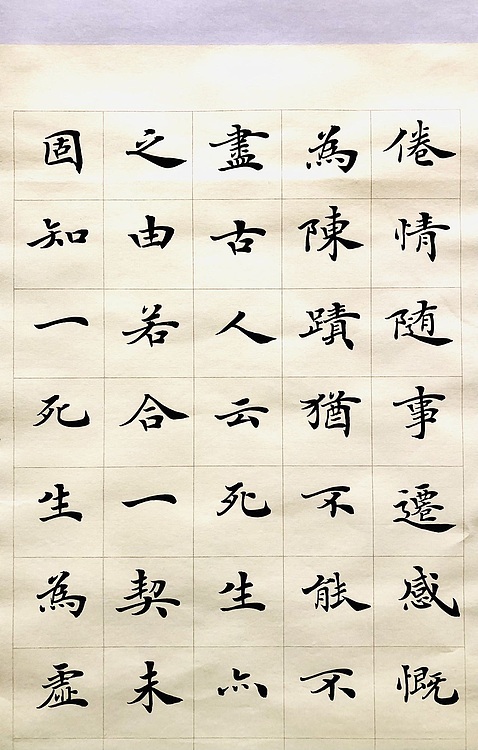 倦情随事遷感慨
為陳蹟猶不能不
盡古人云死生亦
之由若合一契未
固知一死生為虛